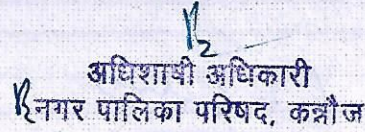 अधिशाषी अधिकारी
नगर पालिका परिषद, कन्नौज